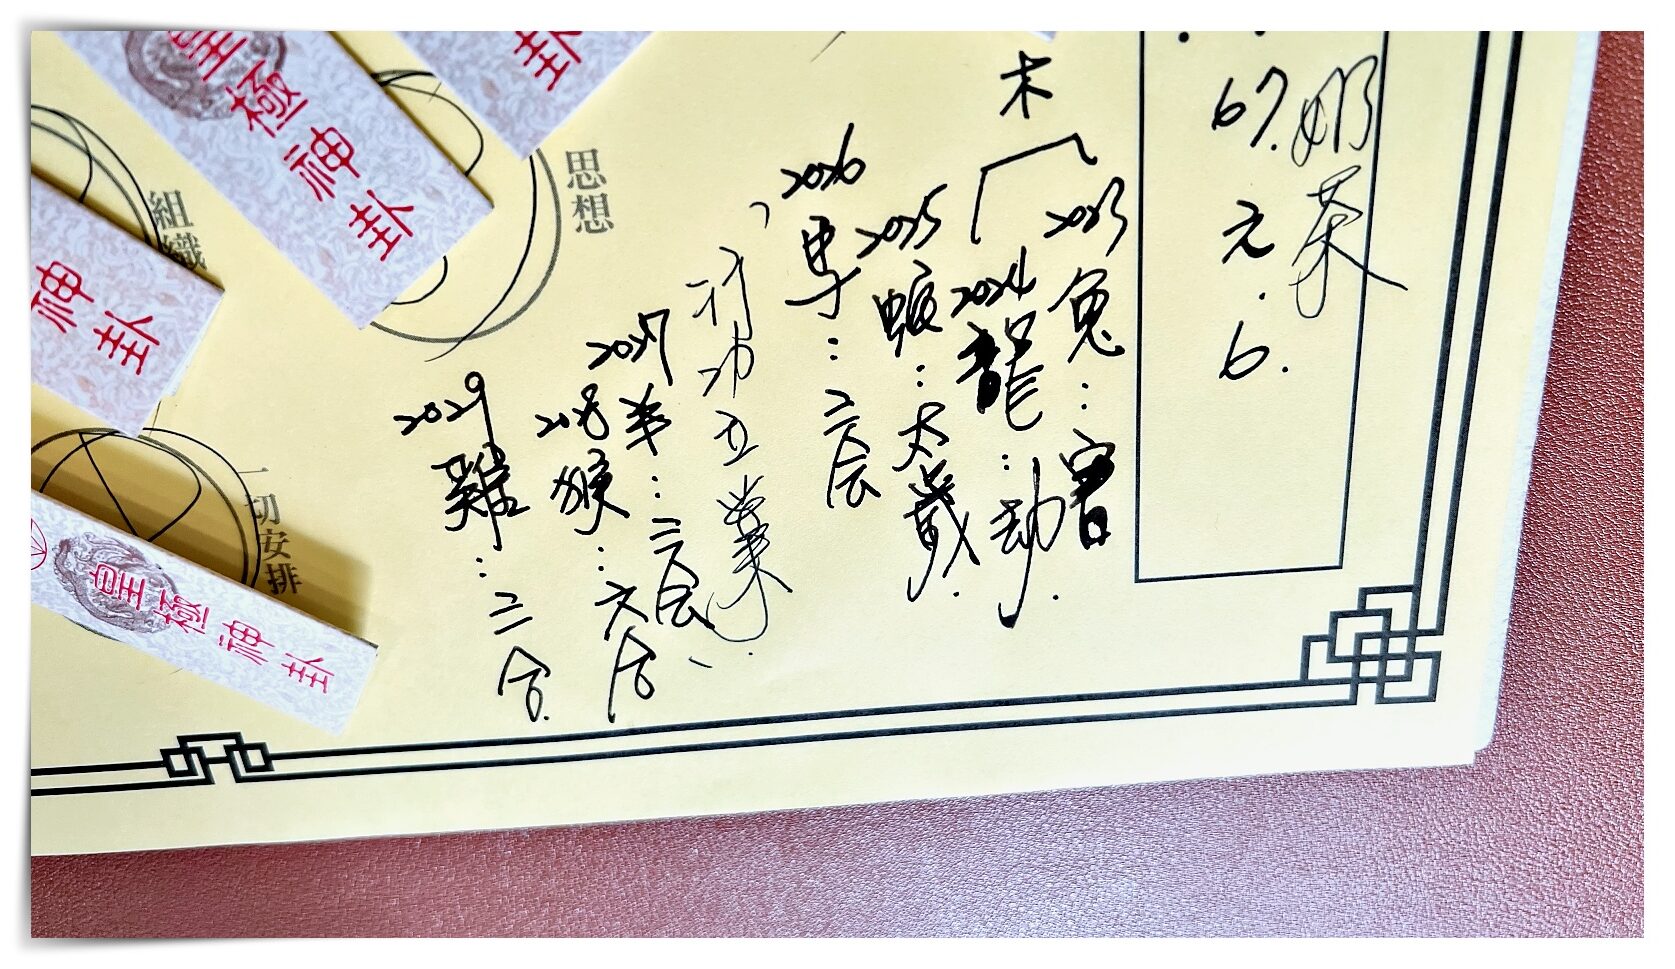 奶茶
67.元.6.
木
2023
兔：害
2024
龍：劫.
2025
蛇：太歲.
2026
馬：三会
行功立業
2027
羊：三会.
2028
猴：六合
2029
雞：三合.
思想
組織
一切安排
卦
皇極神卦
神卦
皇極神卦